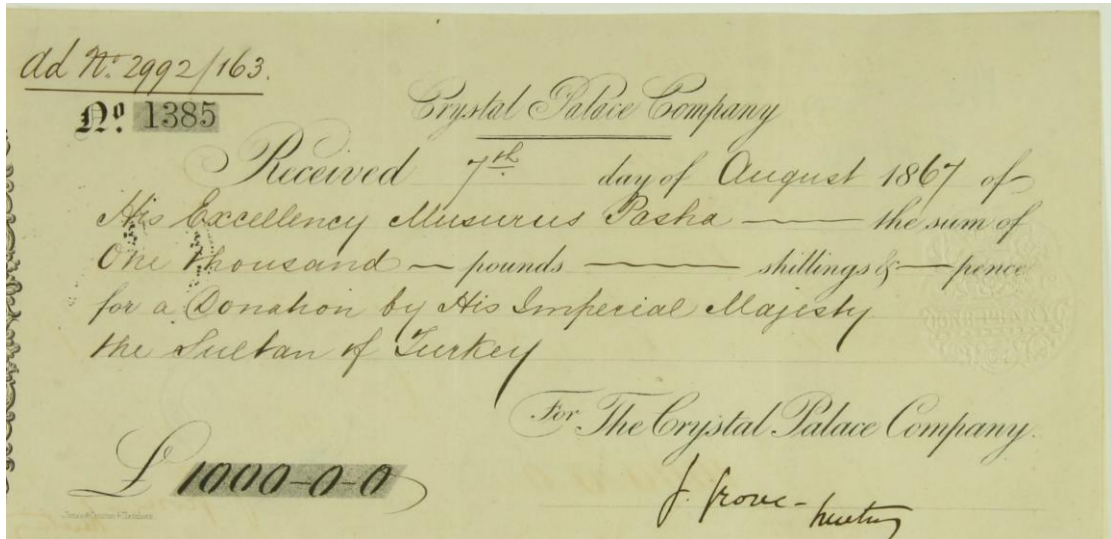 ad No. 2992/163.
No. 1385
Crystal Palace Company
Received 7th day of August 1867 of
His Excellency Musurus Pasha — the sum of
One thousand — pounds — shillings & — pence
for a Donation by His Imperial Majesty
the Sultan of Turkey
For The Crystal Palace Company.
£ 1000-0-0
Grove